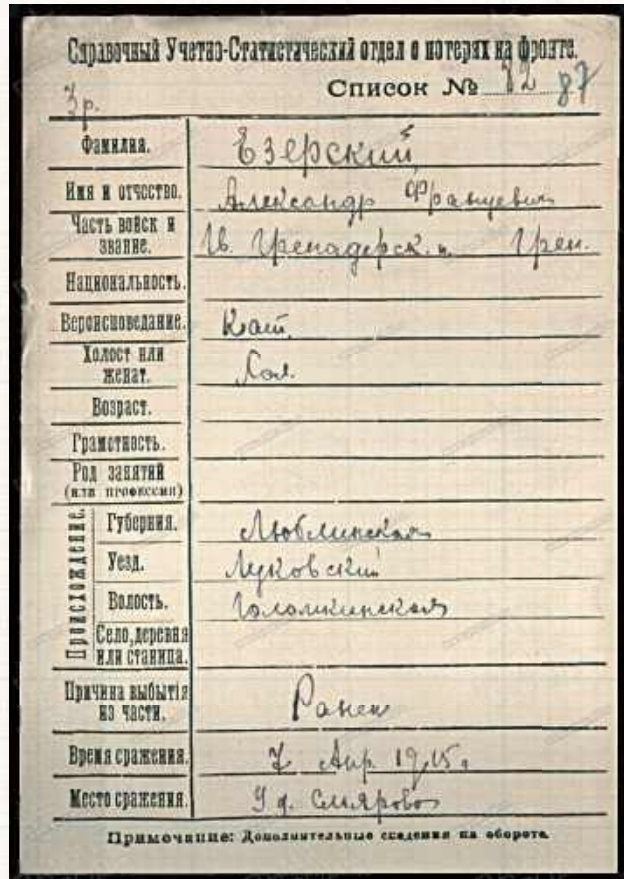 Справочный Учетно-Статистический отдел о потерях на фронте.
Список № 82 87
3 р.
Фамилия. Езерский
Имя и отчество. Александр Францевич
Часть войск и звание. Гв. Гренадерск. п. Грен.
Национальность.
Вероисповедание. Кат.
Холост или женат. Хол.
Возраст.
Грамотность.
Род занятий (или профессии)
Происхождение.
Губерния. Люблинская
Уезд. Луковский
Волость.
Село, деревня или станица.
Причина выбытія из части. Ранен
Время сражения. 7 Апр. 1915 г
Место сражения. У д.
Примечание: Дополнительные сведения на обороте.